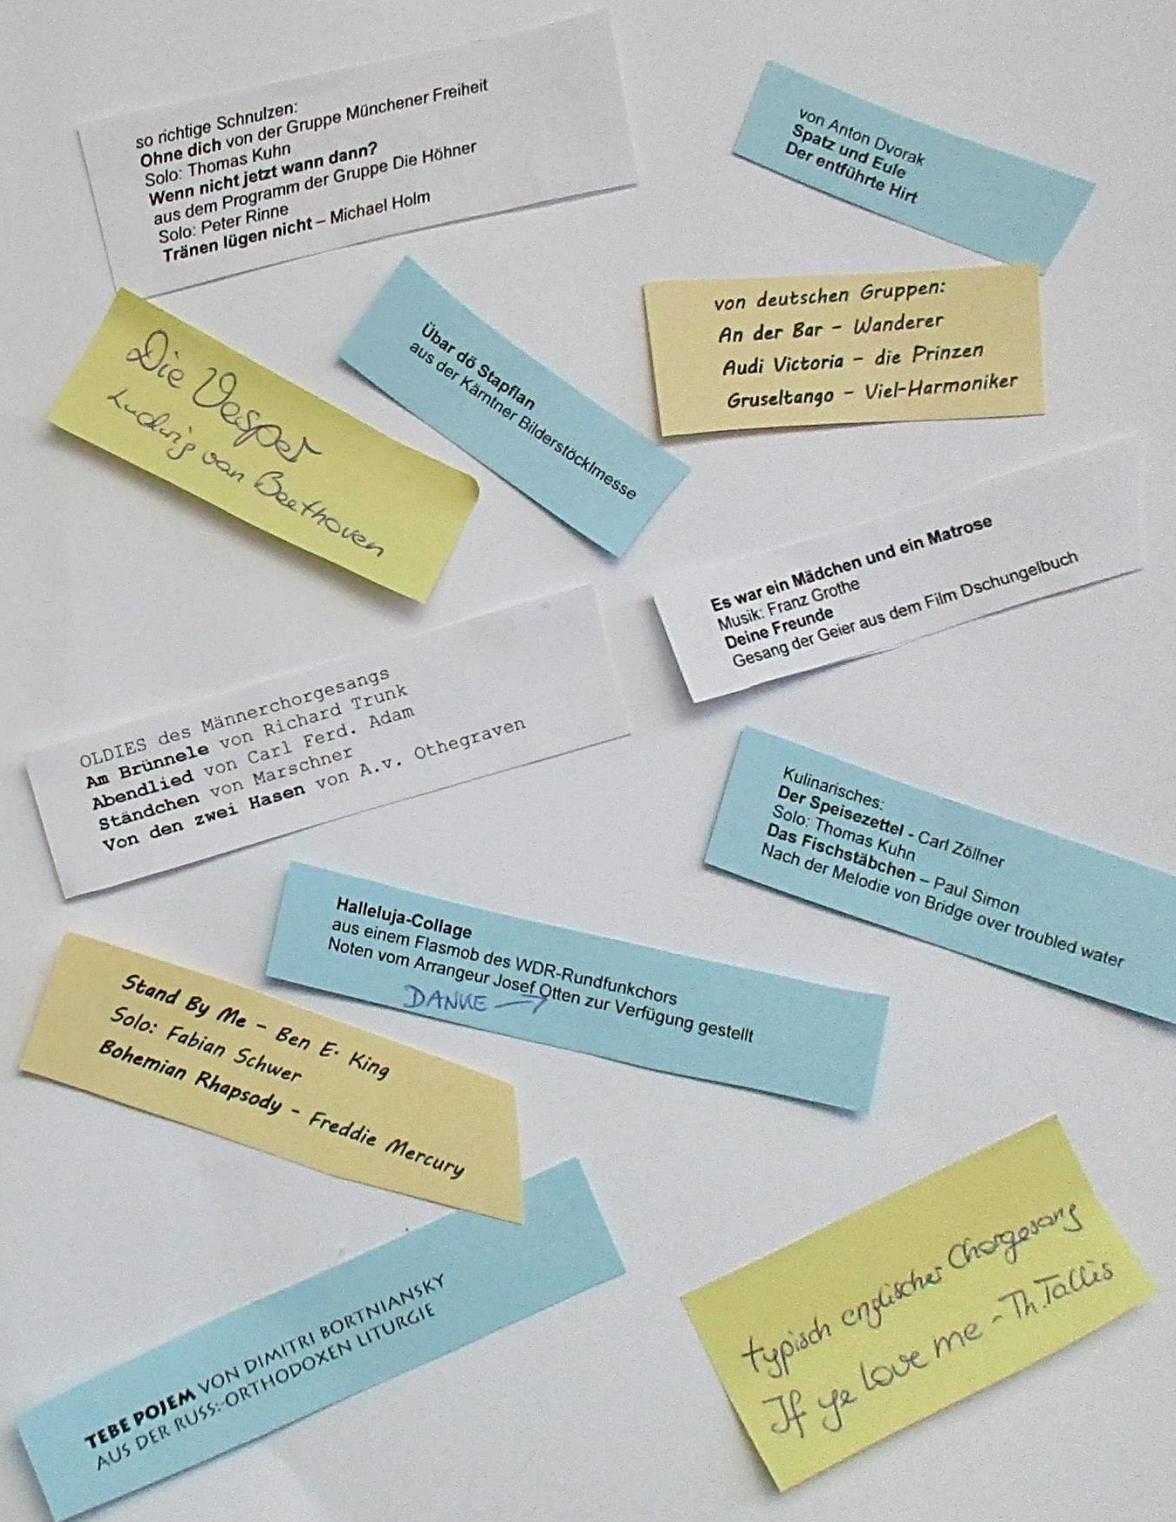 so richtige Schnulzen:
Ohne dich von der Gruppe Münchener Freiheit
Solo: Thomas Kuhn
Wenn nicht jetzt wann dann?
aus dem Programm der Gruppe Die Höhner
Solo: Peter Rinne
Tränen lügen nicht – Michael Holm
von Anton Dvorak
Spatz und Eule
Der entführte Hirt
Die Vesper
Ludwig van Beethoven
Übar dö Stapflan
aus der Kärntner Bilderstöcklmesse
von deutschen Gruppen:
An der Bar - Wanderer
Audi Victoria - die Prinzen
Gruseltango - Viel-Harmoniker
Es war ein Mädchen und ein Matrose
Musik: Franz Grothe
Deine Freunde
Gesang der Geier aus dem Film Dschungelbuch
OLDIES des Männerchorgesangs
Am Brünnele von Richard Trunk
Abendlied von Carl Ferd. Adam
Ständchen von Marschner
Von den zwei Hasen von A.v. Othegraven
Kulinarisches:
Der Speisezettel - Carl Zöllner
Solo: Thomas Kuhn
Das Fischstäbchen – Paul Simon
Nach der Melodie von Bridge over troubled water
Halleluja-Collage
aus einem Flasmob des WDR-Rundfunkchors
Noten vom Arrangeur Josef Otten zur Verfügung gestellt
DANKE →
Stand By Me - Ben E. King
Solo: Fabian Schwer
Bohemian Rhapsody - Freddie Mercury
TEBE POJEM VON DIMITRI BORTNIANSKY
AUS DER RUSS.-ORTHODOXEN LITURGIE
typisch englischer Chorgesang
If ye love me - Th. Tallis